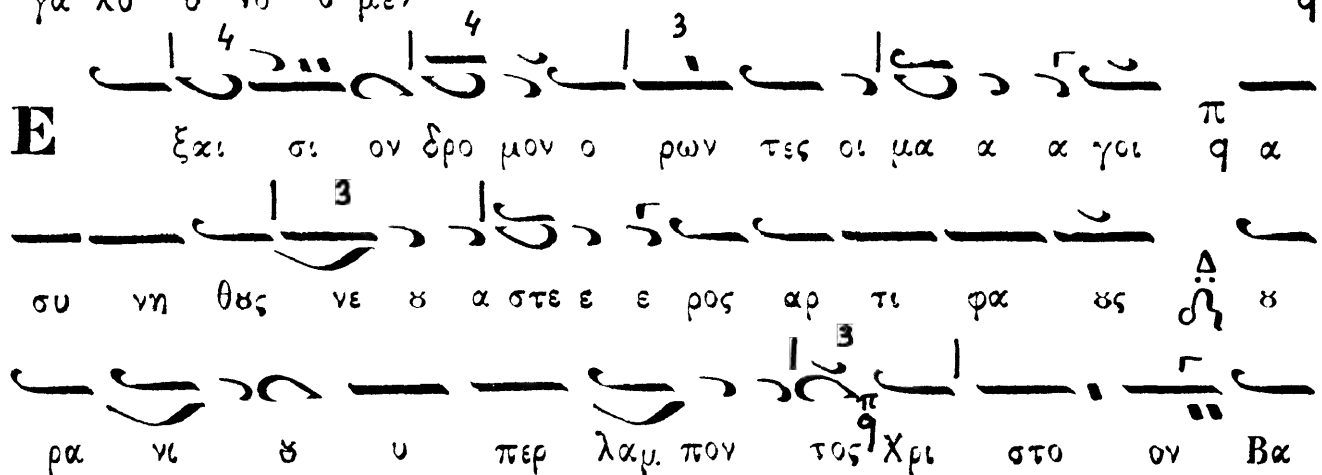 γα λυ ο νο ο μεν
4 4 3
Ε ξαι σι ον δρο μον ο ρων τες οι μα α α γοι π q α
3
συ νη θȣς νε ȣ α στε ε ε ρος αρ τι φα ȣς Δ ȣ
3
ρα νι ȣ υ περ λαμ πον τος π q Χρι στο ον Βα